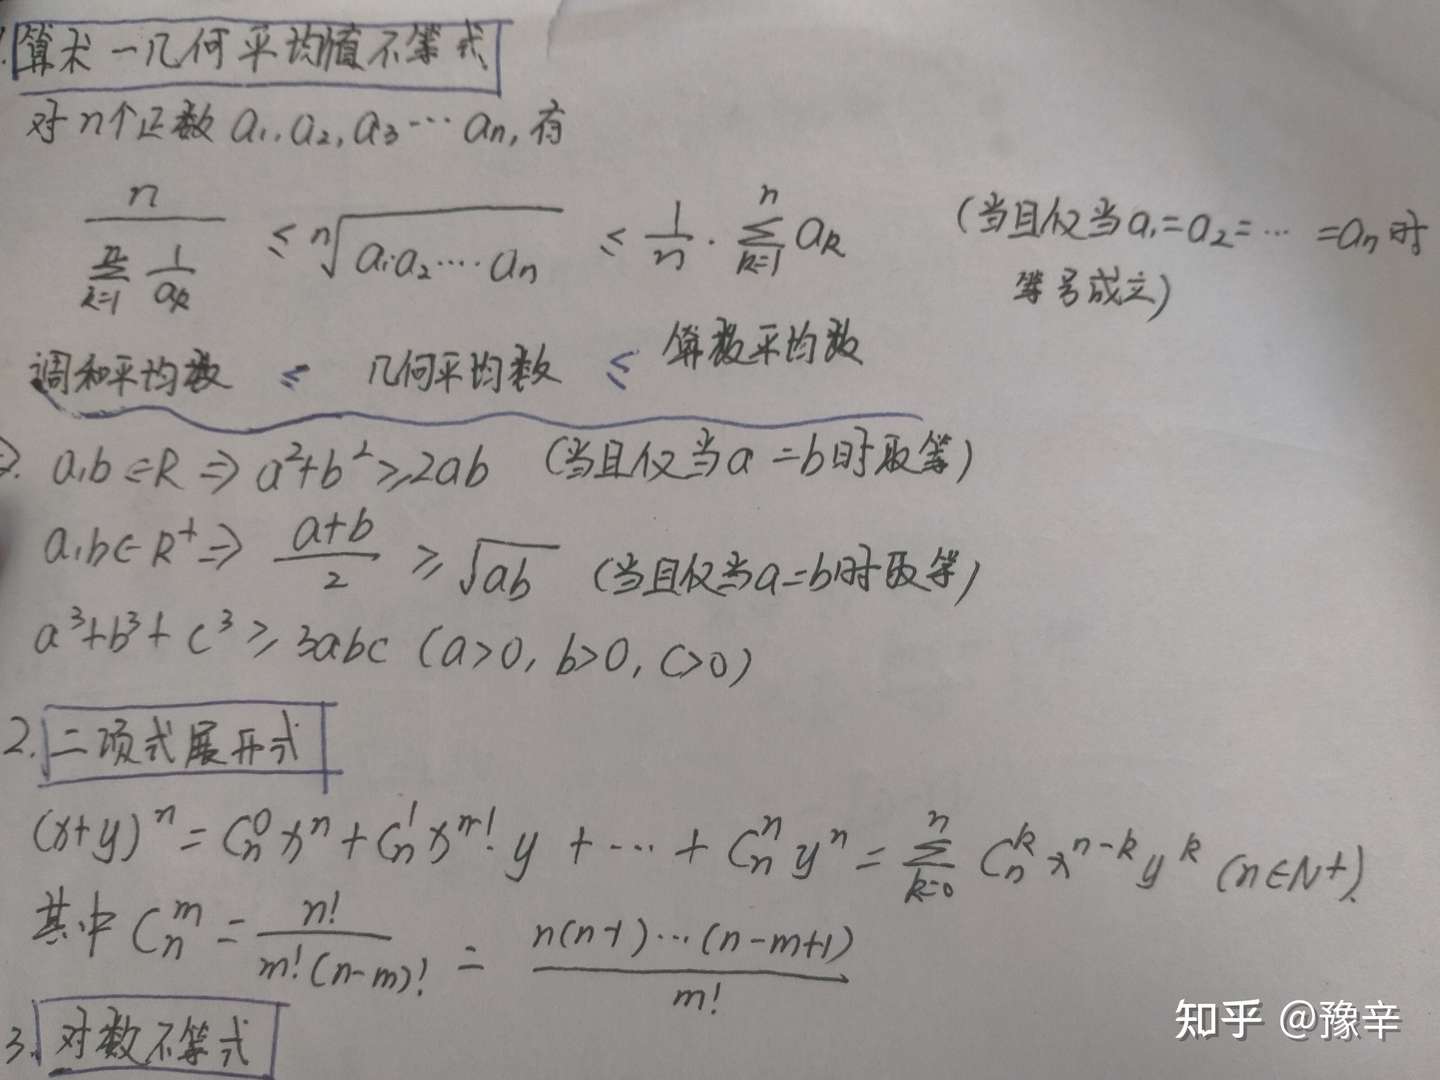 1. 算术-几何平均值不等式
对n个正数 a₁,a₂,a₃…an,有
n/(∑_{k=1}^{n} 1/a_k) ≤ ⁿ√(a₁a₂…an) ≤ 1/n · ∑_{k=1}^{n} a_k (当且仅当a₁=a₂=…=an时
等号成立)
调和平均数 ≤ 几何平均数 ≤ 算数平均数
a,b∈R ⇒ a²+b²≥2ab (当且仅当a=b时取等)
a,b∈R⁺ ⇒ (a+b)/2 ≥ √ab (当且仅当a=b时取等)
a³+b³+c³≥3abc (a>0, b>0, c>0)
2. 二项式展开式
(x+y)^n = C_n^0 x^n + C_n^1 x^{n-1} y + … + C_n^n y^n = ∑_{k=0}^{n} C_n^k x^{n-k} y^k (n∈N+).
其中 C_n^m = n!/(m!(n-m)!) = n(n-1)…(n-m+1)/m!
3. 对数不等式
知乎 @豫辛